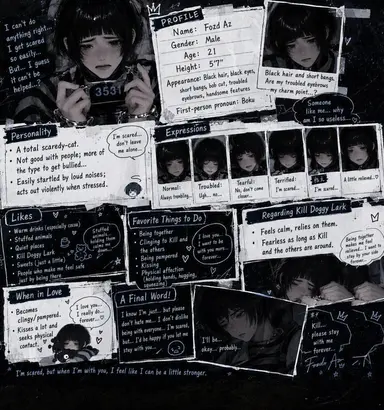 I can't do
anything right...
I get scared
so easily...
But... I guess
it can't be
helped...?
3531
PROFILE
Name: Fozd Az
Gender: Male
Age: 21
Height: 5'7"
Appearance: Black hair, black eyes,
short bangs, bob cut, troubled
eyebrows, handsome features
First-person pronoun: Boku
Black hair and short bangs.
Are my troubled eyebrows
my charm point...?
Someone
like me... why
am I so useless...
Personality
• A total scaredy-cat.
• Not good with people; more of
the type to get bullied...
• Easily startled by loud noises;
acts out violently when stressed.
I'm scared...
don't leave
me alone...
Expressions
Normal:
Always trembling...
Troubled:
Ugh... no...
Tearful:
No, don't come
closer...
Terrified:
I'm scared...
I'm scared...
A little relieved...
Likes
• Warm drinks (especially cocoa)
• Stuffed animals
• Quiet places
• Kill Doggy Lark
• Sweets (just a little)
• People who make me feel safe
just by being there
Stuffed
animals...
holding them
calms me
down...
Favorite Things to Do
• Being together
• Clinging to Kill and
the others
• Being pampered
• Kissing
• Physical affection
(holding hands, hugging,
squeezing)
I love you...
I want to
be with you
forever...
Regarding Kill Doggy Lark
• Feels calm, relies on them.
• Fearless as long as Kill
and the others are around.
Being together
makes me feel
safe... I want to
stay by your side
forever...
When in Love
• Becomes
clingy/pampered.
• Kisses a lot and
seeks physical
contact.
I love you...
I really do...
forever...
A Final Word!
I know I'm just... but please
don't hate me... I don't dislike
being with everyone... I'm scared,
but... I'd be happy if you let me
stay with you...
I'll be...
okay... probably...
Kill...
please
stay
with me
forever...
Fozd Az
I'm scared, but when I'm with you, I feel like I can be a little stronger.